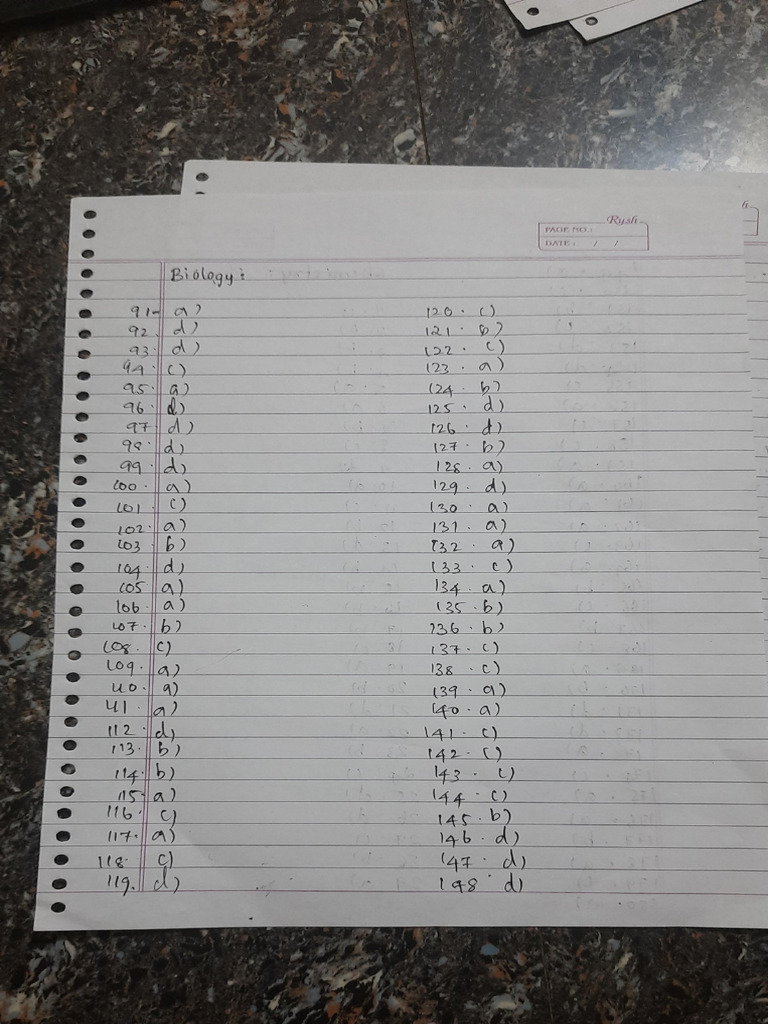 Rysh
PAGE NO.:
DATE: / /
Biology:
91- a)
92. d)
93. d)
94. c)
95. a)
96. d)
97. d)
98. d)
99. d)
100. a)
101. c)
102. a)
103. b)
104. d)
105. a)
106. a)
107. b)
108. c)
109. a)
110. a)
111. a)
112. d)
113. b)
114. b)
115. a)
116. c)
117. a)
118. c)
119. d)
120. c)
121. b)
122. c)
123. a)
124. b)
125. d)
126. d)
127. b)
128. a)
129. d)
130. a)
131. a)
132. a)
133. c)
134. a)
135. b)
136. b)
137. c)
138. c)
139. a)
140. a)
141. c)
142. c)
143. c)
144. c)
145. b)
146. d)
147. d)
148 d)